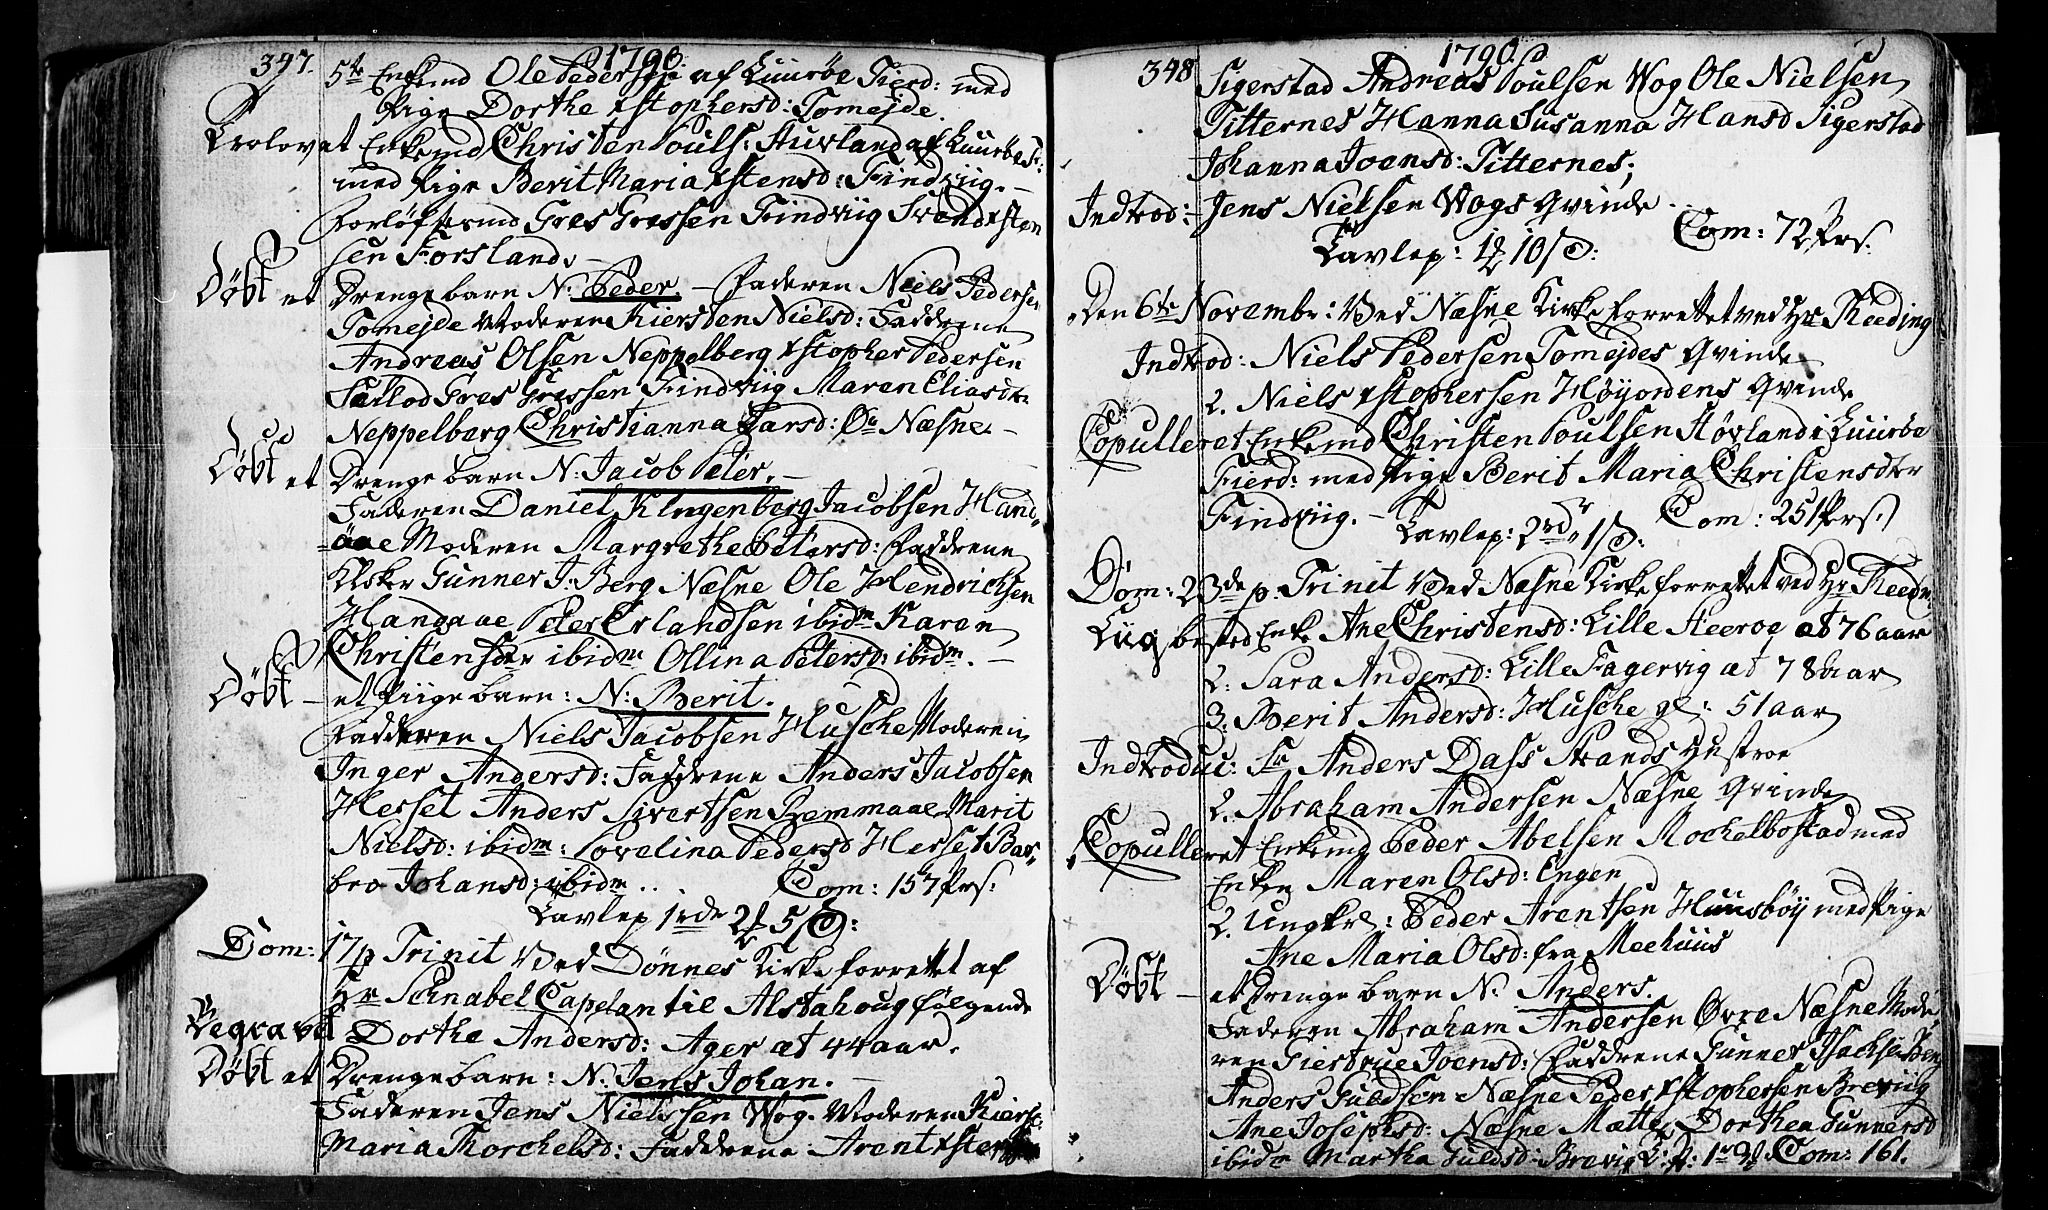 347. 1790.
5te Enkemd Ole Pedersen af Luurøe Fierd: med
Pige Dorthe Xstophersd: Tomejde.
Trolovet Enkemd Christen Pouls: Huvland af Luurøe F:
med Pige Berit Maria Xstensd: Findviig. –
Forløftesmd Gres Gressen Findviig Svend Xsten
sen Forsland.
Døbt et Drengebarn N: Peder. – Faderen Niels Pedersen
Tomejde Moderen Kiersten Nielsd: Faddrene
Andreas Olsen Neppelberg Xstopher Pedersen
Gres Gressen Findviig Maren Eliasdr
Neppelberg Christianna Larsd: Næsne. –
Døbt et Drengebarn N: Jacob Peter. –
Faderen Daniel Klngenberg Jacobsen Hand„
„aae Moderen Margrethe Petersd: Faddrene
Kloker Gunner J: Berg Næsne Ole Hendrichsen
Handaae Peter Erlandsen ibidm Karen
Christensder ibidm Ollina Petersd: ibidm. –
Døbt – et Piigebarn: N: Berit.
Fadderen Niels Jacobsen Husche Moderen
Inger Andersd: Faddrene Anders Jacobsen
Herset Anders Sivertsen Remmaae Marit
Nielsd: ibidm: Lovelina Pedersd Herset Bar„
bro Johansd: ibidm .. Com: 157 Prs:
Tavlep 1rde 2 5 :
Dom: 17 p Trinit Ved Dønnes Kirke forrettet af
Hr Schnabel Capelan til Alstahoug følgende
Begravet Dorthe Andersd: Ager æt 44 aar.
Døbt et Drengebarn: N: Jens Johan. –
Faderen Jens Nielssen Wog. Moderen Kierst:
Maria Thorchelsd: Faddrene Arent Xsten
348 1790
Sigerstad Andreas Poulsen Wog Ole Nielsen
Titternes Hanna Susanna Hansd Sigerstad
Johanna Joensd: Titternes;
Indtrod: – Jens Nielsen Wogs Qvinde ..
Tavlep: 10 : Com: 72 Prs.
Den 6te Novembr: Ved Næsne Kirke forrettet ved Hr Reeding
Indtrod: Niels Pedersen Tomejdes Qvinde
2. Niels Xstophersen Høyordens Qvinde
Copulleret Enkemd Christen Poulsen Høvland i Luurøe
Fierd: med Pige Berit Maria Christensdtr
Findviig. – Tavlep: 2rd 1 : Com: 251 Prs:
Dom: 23de p. Trinit Ved Næsne Kirke forrettet ved Hr Reedn
Liigbested Enke Ane Christensd: Lille Heeroe æt 76 aar
2. Sara Andersd: Lille Fagervig æt 78 aar
3. Berit Andersd: Husche gl: 51 aar
Indtroduc: Sr Anders Dass Strands Hustroe
2. Abraham Andersen Næsne Qvinde
Copulleret Enkemd Peder Abelsen Mochelbostad med
Enken Maren Olsd: Engen
2. Ungkrl: Peder Arentsen Huusbøy med Pige
Ane Maria Olsd: fra Meehuus
Døbt – et Drengebarn N: Anders
Faderen Abraham Andersen Øvre Næsne Mode„
ren Giertrue Joensd: Faddrene Gunner Isachs: Berg
Anders Guldsen Næsne Peder Xstophersen Breviig
Ane Josephsd: Næsne Mætte Dorthea Gunnersd
ibidm Martha Guldsd: Brevig T: p: 1 Com: 161.